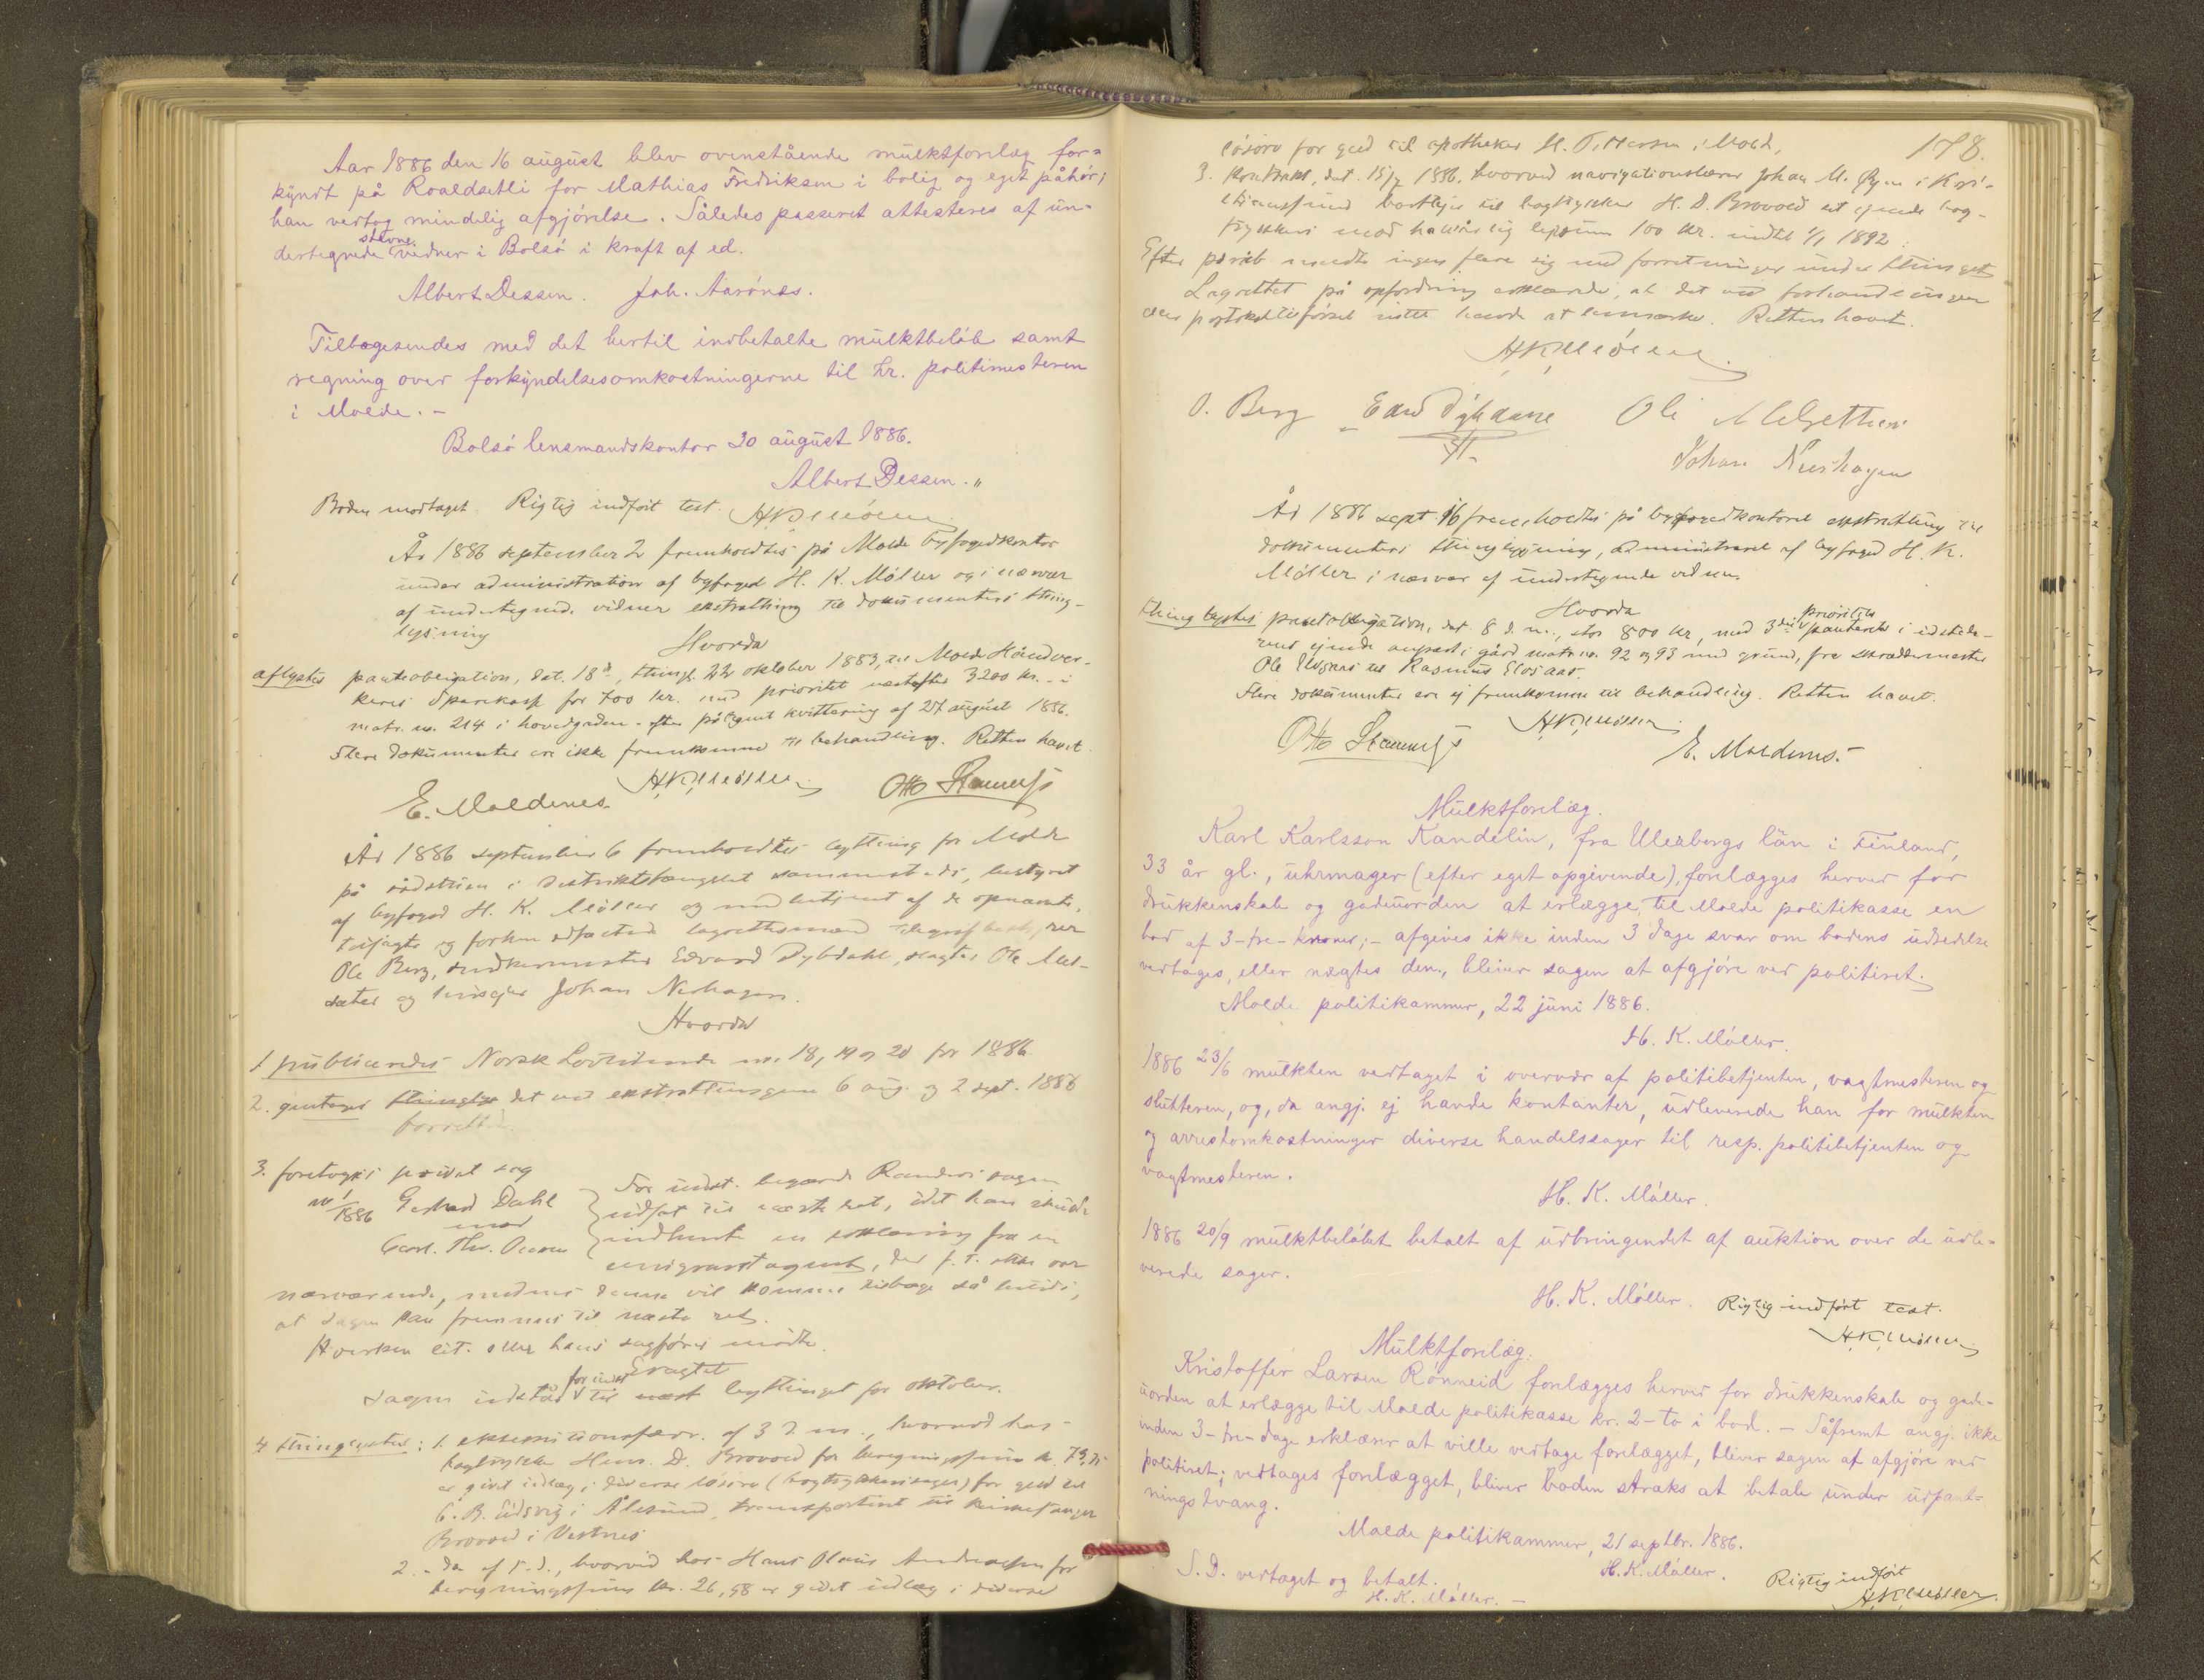 Aar 1886 den 16 august blev ovenstående mulktforelæg for=
kyndt på Roaldsetli for Mathias Fredriksen i bolig og eget påhør;
han vertog mindelig afgjørelse. Således passeret attesteres af un-
dertegnede stevnevidner i Bolsø i kraft af ed.
Albert Dessen. Joh. Aarønæs.
Tilbagesendes med det hertil indbetalte mulktbeløb samt
regning over forkyndelsesomkostningerne til hr. politimesteren
i Molde. -
Bolsø lensmandskontor 30 august 1886.
Albert Dessen."
Boden modtaget. Rigtig indført test. HKMøller
År 1886 september 2 fremholdtes på Molde byfogedkontor
under administration af byfoged H. K. Møller og i nærvær
af undertegnede vidner ekstrathing til dokumenters thing-
lysning
Hvorda
aflystes pantobligation, dat. 18de, thingl. 22 oktober 1883, til Molde Håndver-
keres Sparekasse for 700 kr. med prioritet næstefter 3200 kr. i
matr. no. 214 i hovedgaden - efter påtegnet kvittering af 27 august 1886.
Flere dokumenter ere ikke fremkomne til behandling. Retten hævet.
HKMøller
E. Moldenes. Otto
År 1886 september 6 fremholdtes bything for Molde
på rådstuen i distriktsfængslet sammesteds, bestyret
af byfoged H. K. Møller og med betjent af de opnævnte,
tilsagte og forhen edfæstede lagrettesmænd telegrafbestyrer
Ole Berg, snedkermester Edvard Dybdahl, slagter Ole Mel-
sæter og huseier Johan Nerhagen.
Hvorda
1 publiceredes Norsk Lovtidende no. 18, 19 og 20 for 1886
2. gentages det ved ekstrathingene 6 aug. og 2 sept. 1886
forrettede.
3. foretoges privat sag
no 1/1886 Gerhard Dahl
mod
Carl. Thr.
For indst. begærede Randers sagen
udsat til næste ret, idet han skulde
indhente en erklæring fra en
emigrantagent, der f. t. ikke var
nærværende, medens denne vil komme tilbage så betids,
at sagen kan fremmes til næste ret.
Hverken cit. eller hans sagfører mødte.
Eragtet
Sagen udståd for indst. til bythinget for oktober.
4 thinglystes: 1. eksekutionsforr. af 3 d. m., hvorved hos
bogtrykker Hans. D. Brovold for beregningssum kr. 73,75
er givet udlæg i diverse løsøre (bogtrykkerisager) for gæld til
C. B. Eidsvig i Ålesund, transporteret til kirkesanger
Brovold i Vestnes
2. - do af s. d., hvorved hos Hans Olaus Andreassen for
beregningssum kr. 26,58 er gjort udlæg i diverse
178.
løsøre for gæld til apotheker H. Petersen i Molde,
3. Kontrakt, dat. 15/7 1886, hvorved navigationslærer Johan M. Øyen i Kri-
stianssund bortlejer til bogtrykker H. D. Brovold sit ejende bog-
trykkeri mod halvårlig lejesum 100 kr. indtil 1/1 1892.
Efter påråb meldte ingen flere sig med forretninger under thinget.
Lagrettet på opfordring erklærede, at det ved forhandlingen
eller protokoltilførsel intet havde at bemærke. Retten hævet.
HKMøller.
O. Berg Edvd Dybdahl Ole Melsetter
Johan Nerhagen
År 1886 sept 16 fremholdtes på byfogedkontoret ekstrathing til
dokumenters thinglysning, administreret af byfoged H. K.
Møller i nærvær af undertegnede vidner.
Hvorda
thinglystes pantobligation, dat. 8 d. m., stor 800 kr, med 3die prioritets panteret i udsteder-
rens ejende anpart i gård matr. no. 92 og 93 med grund, fra skræddermester
Ole Elosaas til Rasmus Elosaas.
Flere dokumenter ere ej fremkomne til behandling. Retten hævet.
HKMøller
Otto E. Moldenes.
Mulktforelæg.
Karl Karlsson Kandelin, fra Uleåborgs län i Finland,
33 år gl., uhrmager (efter eget opgivende), forelægges herved for
drukkenskab og gadeuorden at erlægge til Molde politikasse en
bod af 3-tre-kroner; - afgives ikke inden 3 dage svar om bodens udredelse
vertages, eller nægtes den, bliver sagen at afgjøre ved politiret.
Molde politikammer, 22 juni 1886.
H. K. Møller.
1886 23/6 mulkten vertaget i overvær af politibetjenten, vagtmesteren og
slutteren, og, da angj. ej havde kontanter, udleverede han for mulkten
og arrestomkostninger diverse handelssager til resp. politibetjenten og
vagtmesteren.
H. K. Møller.
1886 20/9 mulktbeløbet betalt af udbringendet af auktion over de udle-
verede sager.
H. K. Møller. Rigtig indført test.
HKMøller
Mulktforelæg.
Kristoffer Larsen Rønneid forelægges herved for drukkenskab og gade-
uorden at erlægge til Molde politikasse kr. 2-to i bod. - Såfremt angj. ikke
inden 3-tre-dage erklærer at ville vertage forelægget, bliver sagen at afgjøre ved
politiret; vertages forelægget, bliver boden straks at betale under udpant-
ningstvang.
Molde politikammer, 21 septbr. 1886.
H. K. Møller.
S. D. vertaget og betalt.
H. K. Møller. -
Rigtig indført
HKMøller.